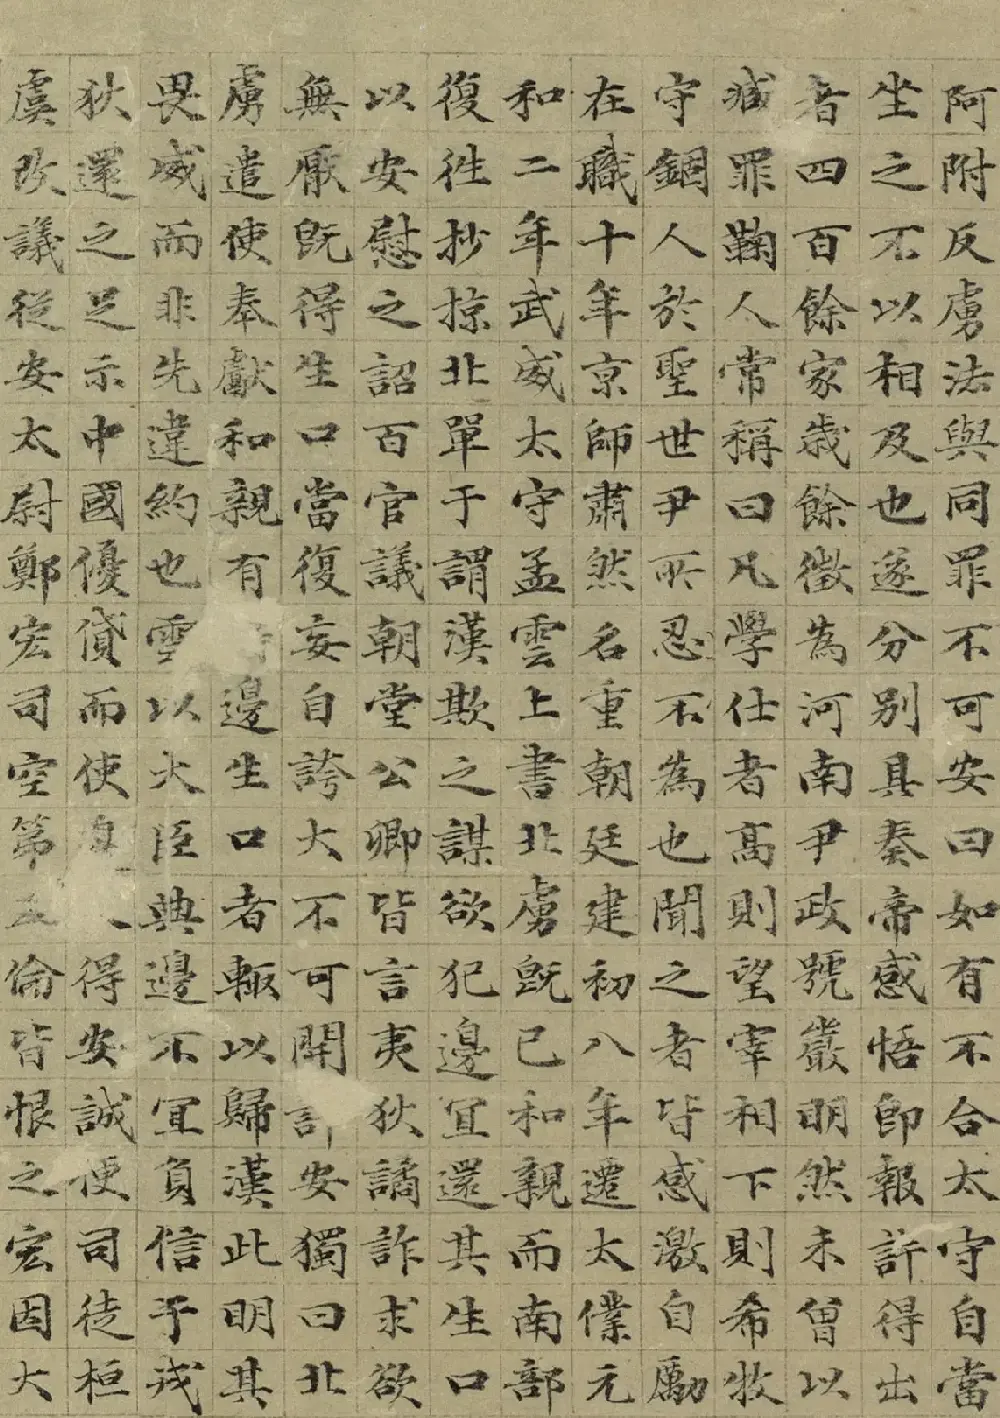 阿附反虜法與同罪不可安曰如有不合太守自當
坐之不以相及也遂分別具奏帝感悟即報許得出
者四百餘家歲餘徵為河南尹政號嚴明然未曾以
臧罪鞠人常稱曰凡學仕者高則望宰相下則希牧
守錮人於聖世尹所忍不為也聞之者皆感激自勵
在職十年京師肅然名重朝廷建初八年遷太僕元
和二年武威太守孟雲上書北虜既已和親而南部
復往抄掠北單于謂漢欺之謀欲犯邊宜還其生口
以安慰之詔百官議朝堂公卿皆言夷狄譎詐求欲
無厭既得生口當復妄自誇大不可開許安獨曰北
虜遣使奉獻和親有邊生口者輒以歸漢此明其
畏威而非先違約也雲以大臣典邊不宜負信于戎
狄還之足示中國優貸而使人得安誠便司徒桓
虞改議從安太尉鄭宏司空第五倫皆恨之宏因大